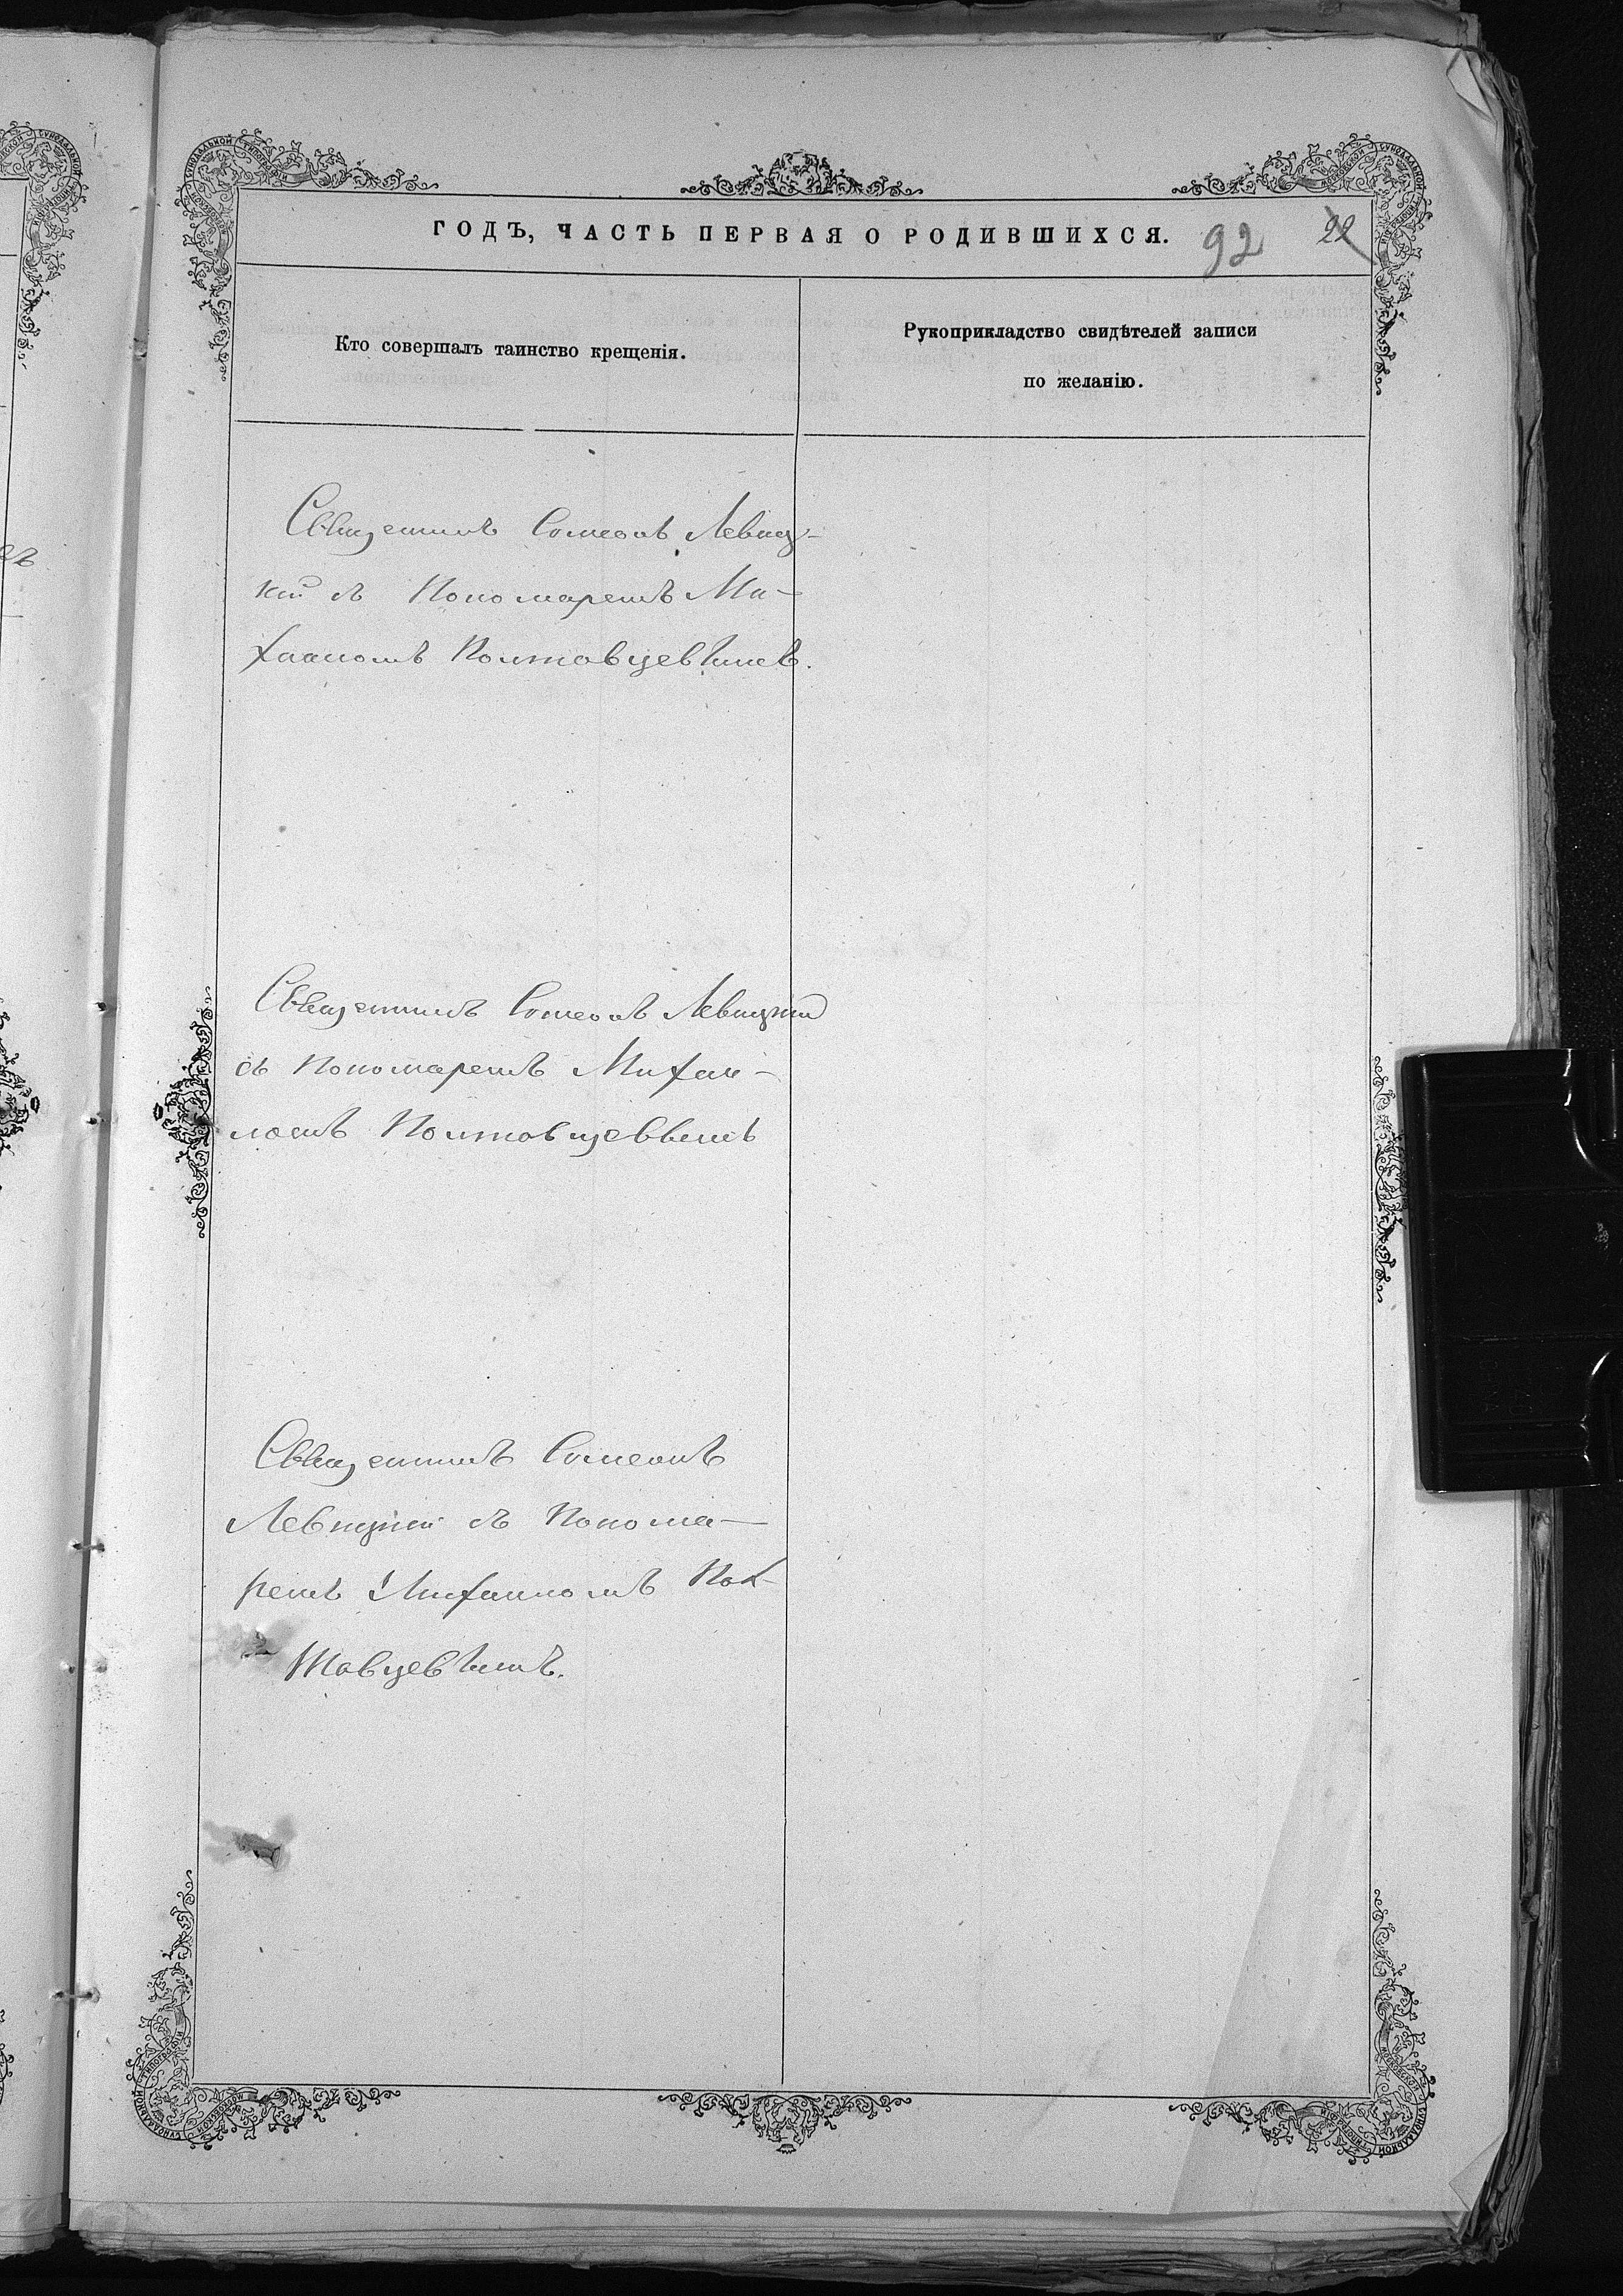 ГОДЪ, ЧАСТЬ ПЕРВАЯ О РОДИВШИХСЯ.
92
22
Кто совершалъ таинство крещенія.
Рукоприкладство свидѣтелей записи
по желанію.
Священникъ Симеонъ Левиц-
кій съ Пономаремъ Ми-
хаиломъ Полтавцевымъ.
Священникъ Симеонъ Левицкій
съ Пономаремъ Михаи-
ломъ Полтавцевымъ
Священникъ Симеонъ
Левицкій съ Понома-
ремъ Михаиломъ Пол-
тавцевымъ.